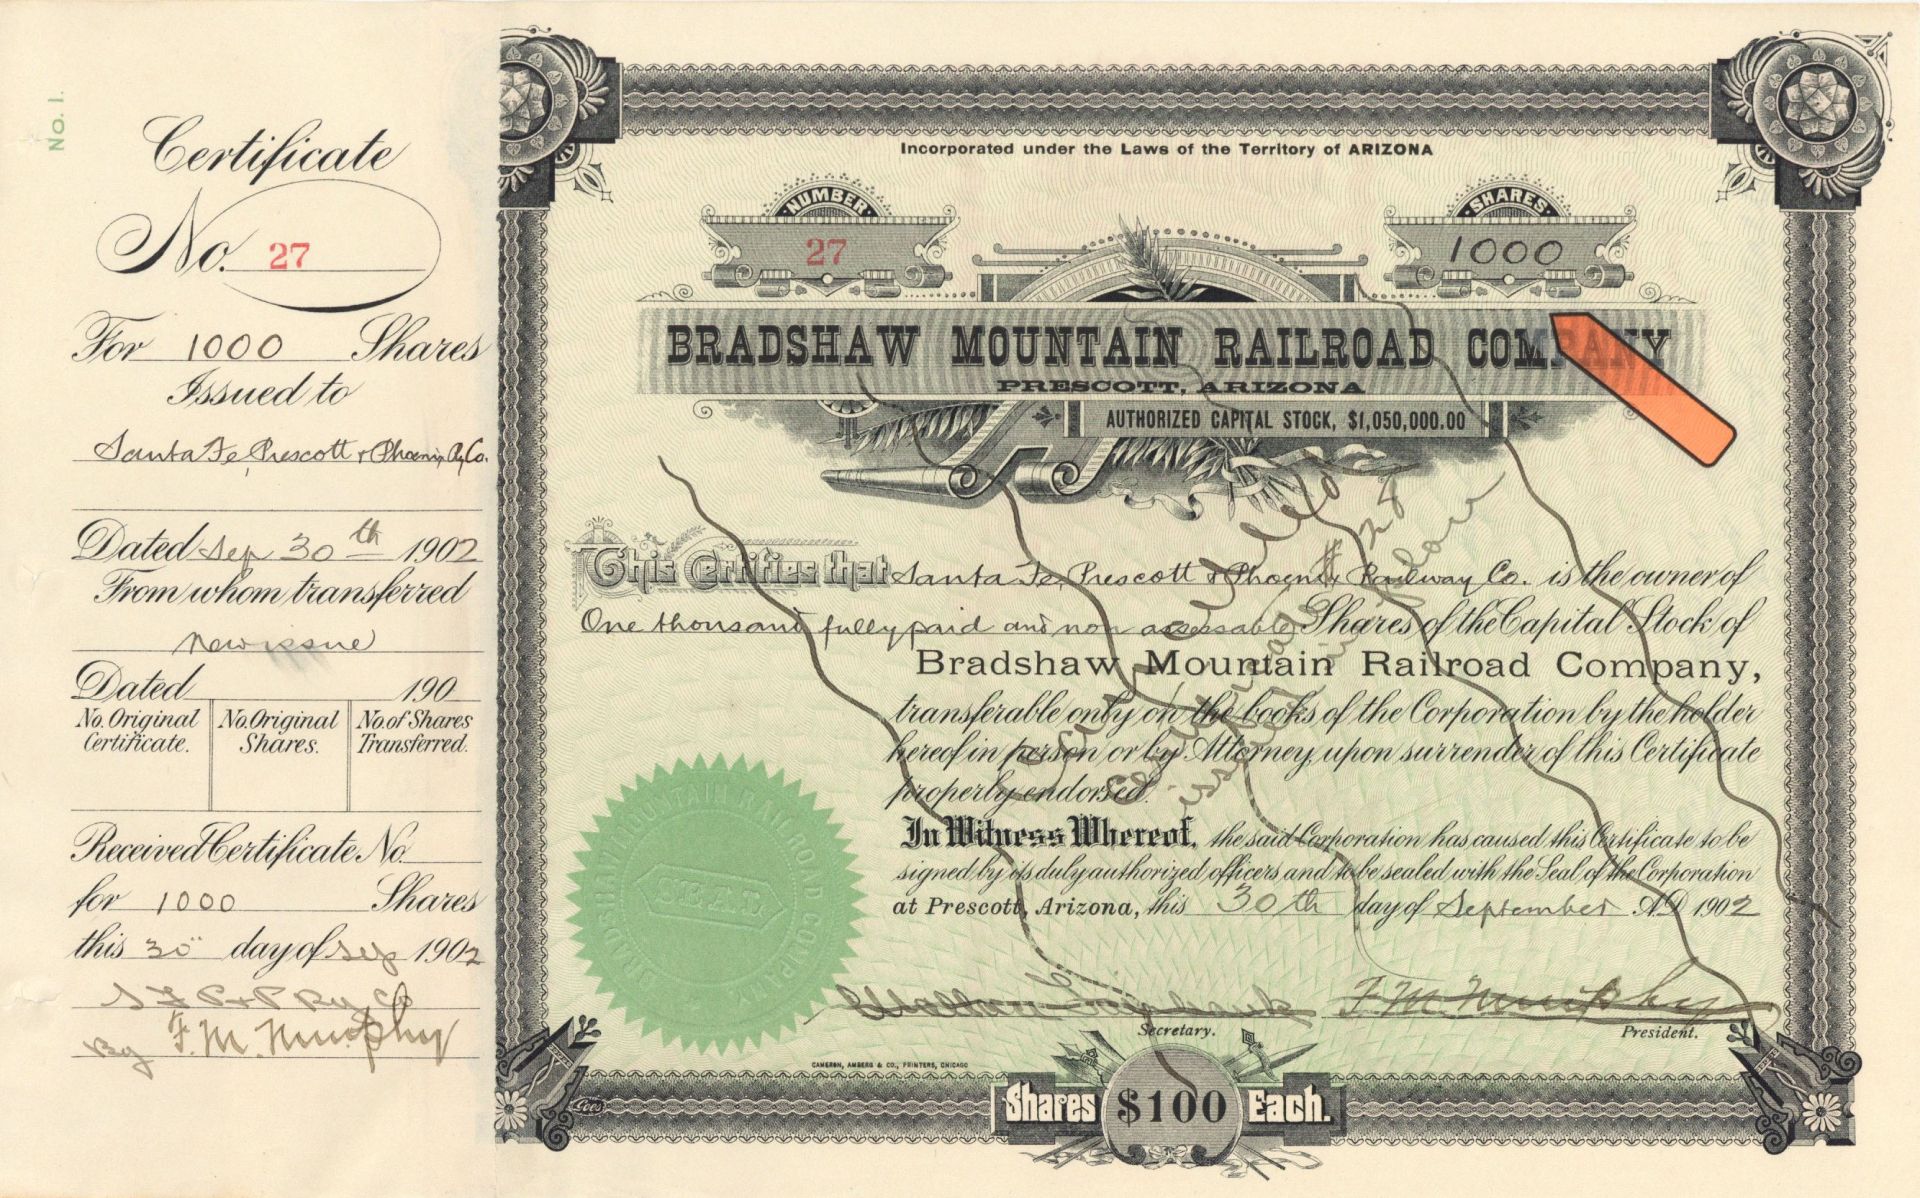 No. 1.
Certificate
No. 27
For 1000 Shares
Issued to
Santa Fe, Prescott & Phoenix Ry Co.
Dated Sep 30th 1902
From whom transferred
New issue
Dated 190
No. Original Certificate.
No. Original Shares.
No. of Shares Transferred.
Received Certificate No.
for 1000 Shares
this 30" day of Sep 1902
S F P & P Ry Co
By F. M. Murphy
Incorporated under the Laws of the Territory of ARIZONA
NUMBER
27
SHARES
1000
BRADSHAW MOUNTAIN RAILROAD COMPANY
PRESCOTT, ARIZONA
AUTHORIZED CAPITAL STOCK, $1,050,000.00
This Certifies that Santa Fe, Prescott & Phoenix Railway Co. is the owner of
One thousand fully paid and non assessable Shares of the Capital Stock of
Bradshaw Mountain Railroad Company,
transferable only on the books of the Corporation by the holder
hereof in person or by Attorney, upon surrender of this Certificate
properly endorsed.
In Witness Whereof, the said Corporation has caused this Certificate to be
signed by its duly authorized officers and to be sealed with the Seal of the Corporation
at Prescott, Arizona, this 30th day of September A.D. 1902
Cancelled
# 28
issued in place
BRADSHAW MOUNTAIN RAILROAD COMPANY
SEAL
Secretary.
F. M. Murphy
President.
CAMERON, AMBERG & CO., PRINTERS, CHICAGO
Goes
Shares $100 Each.